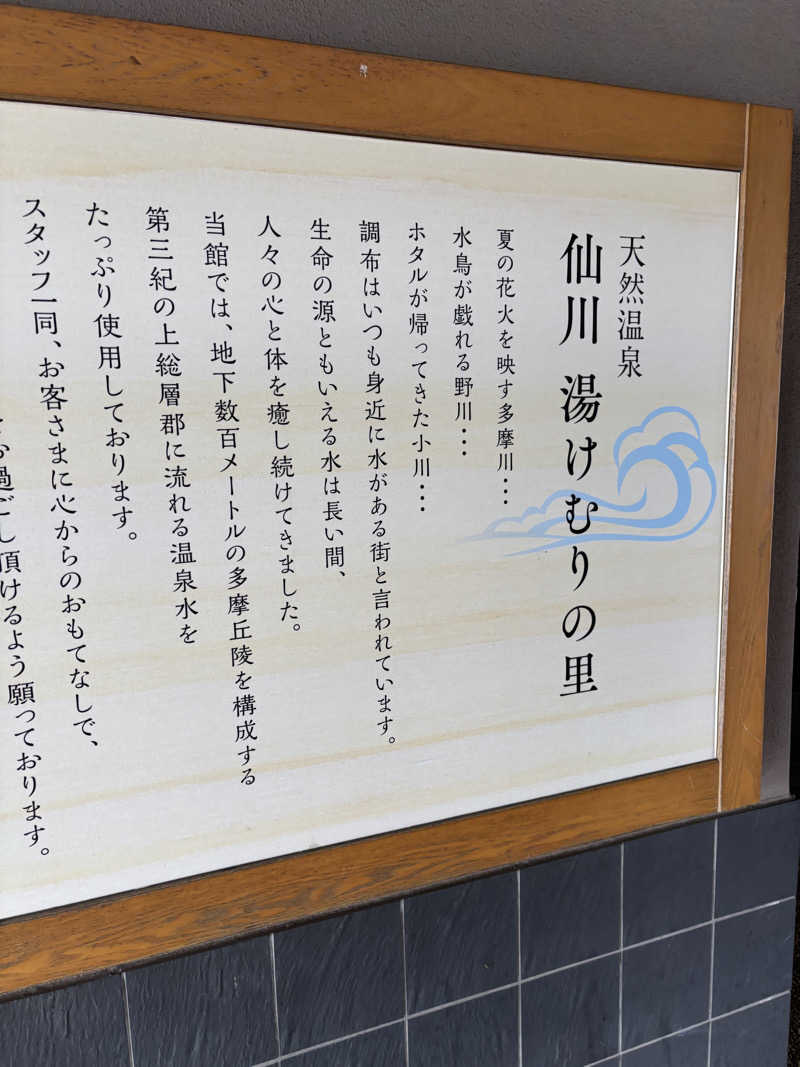 天然温泉
仙川 湯けむりの里
夏の花火を映す多摩川・・・
水鳥が戯れる野川・・・
ホタルが帰ってきた小川・・・
調布はいつも身近に水がある街と言われています。
生命の源ともいえる水は長い間、
人々の心と体を癒し続けてきました。
当館では、地下数百メートルの多摩丘陵を構成する
第三紀の上総層郡に流れる温泉水を
たっぷり使用しております。
スタッフ一同、お客さまに心からのおもてなしで、
過ごし頂けるよう願っております。